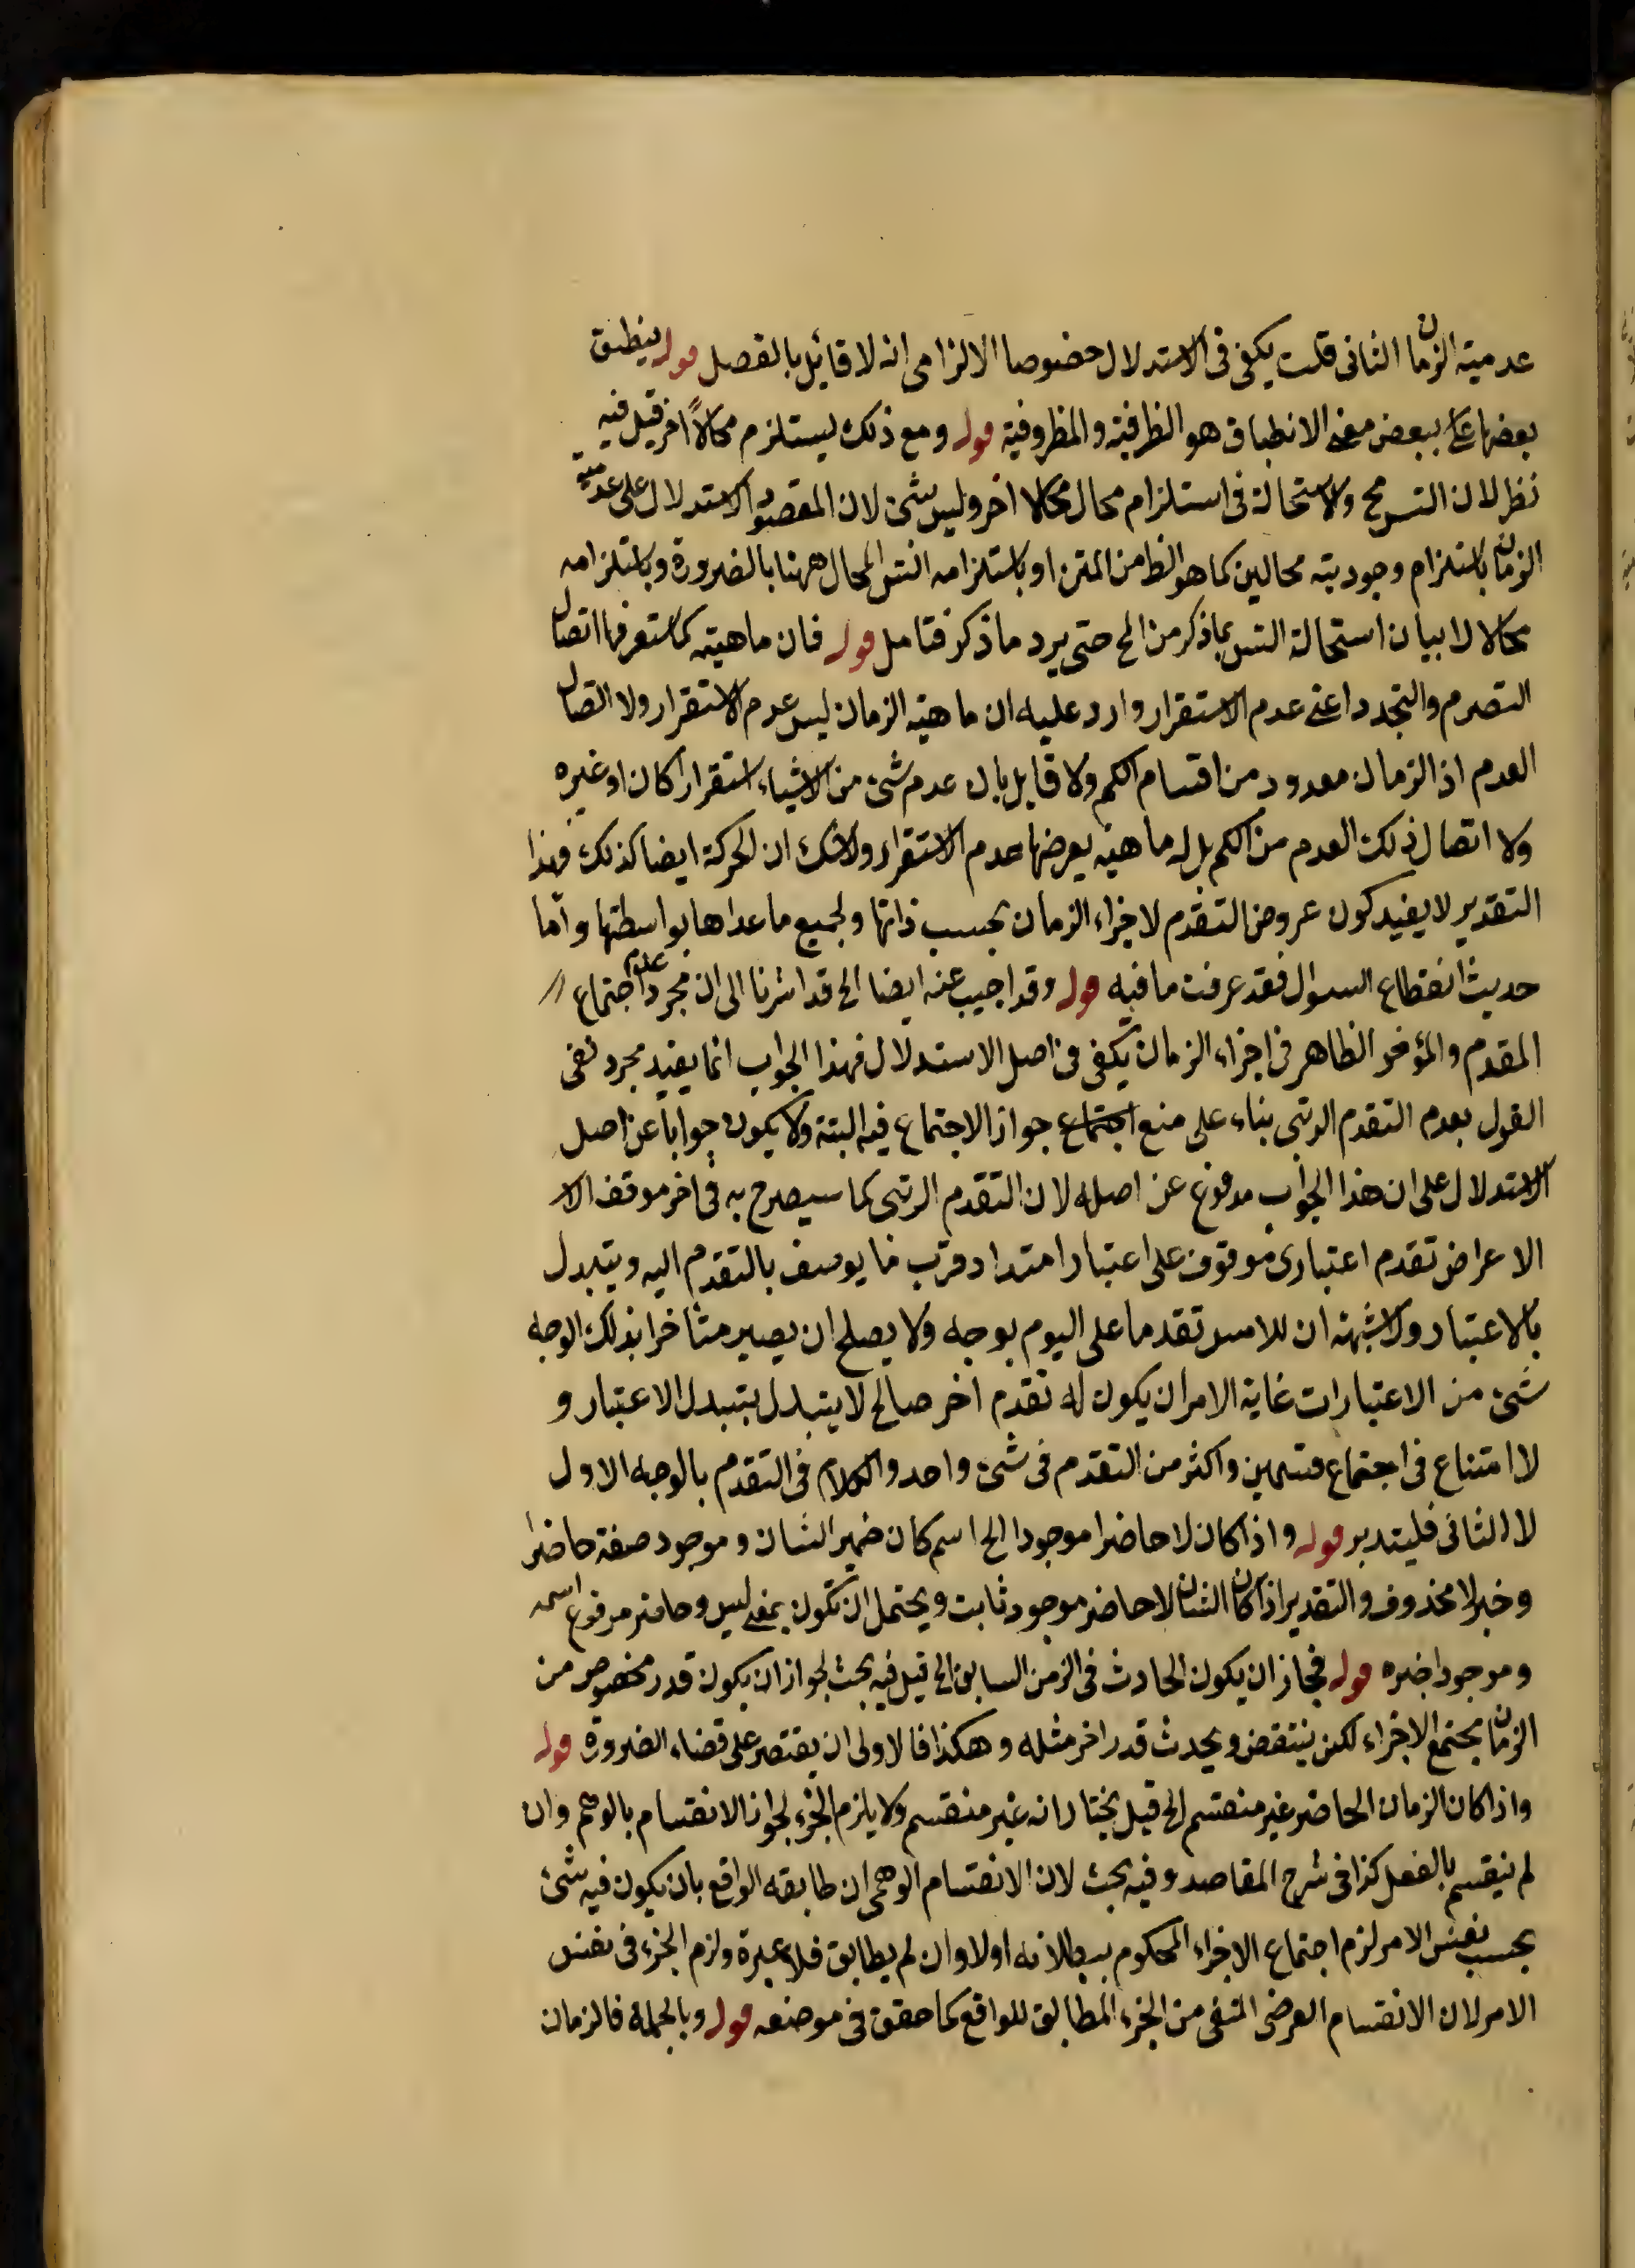 عدمية الزمان الثانى قلت يكفى فى الاستدلال خصوصا الالزامى انه لا قائل بالفصل قوله ينطبق
بعضها على بعض معنى الانطباق هو الظرفية والمظروفية قوله ومع ذلك يستلزم محالاً اخر قيل فيه
نظر لان التس مح ولا استحالة فى استلزام محال محالا اخر وليس بشئ لان المقصود الاستدلال على عدمية
الزمان باستلزام وجوديته محالين كما هو الظ من المتن او باستلزامه التس المحال ههنا بالضرورة وباستلزامه
محالا لا بيان استحالة التس بما ذكر من الح حتى يرد ما ذكر فتامل قوله فان ماهيته كما ستعرفها اتصال
التصرم والتجدد اعنى عدم الاستقرار وارد عليه ان ماهية الزمان ليس عدم الاستقرار ولا اتصال
العدم اذ الزمان معدود من اقسام الكم ولا قايل بان عدم شئ من الاشياء استقرارا كان او غيره
ولا اتصال ذلك العدم من الكم بل له ماهية يعرضها عدم الاستقرار ولا شك ان الحركة ايضا كذلك فهذا
التقدير لا يفيد كون عروض التقدم لاجزاء الزمان بحسب ذاتها ولجميع ما عداها بواسطتها واما
حديث انقطاع السوال فقد عرفت ما فيه قوله وقد اجيب عنه ايضا الخ قد اشرنا الى ان مجرد عدم اجتماع
المقدم والمؤخر الظاهر فى اجزاء الزمان يكفى فى اصل الاستدلال فهذا الجواب انما يفيد مجرد نفى
القول بعدم التقدم الرتبى بناء على منع اجتماع جواز الاجتماع فيه البتة ولا يكون جوابا عن اصل
الاستدلال على ان هذا الجواب مدفوع عن اصله لان التقدم الرتبى كما سيصرح به فى اخر موقف الا
الاعراض تقدم اعتبارى موقوف على اعتبار امتداد وقرب ما يوصف بالتقدم اليه ويتبدل
بالاعتبار ولا شبهة ان للامس تقدما على اليوم بوجه ولا يصلح ان يصير متأخرا بذلك الوجه
شئ من الاعتبارات غاية الامر ان يكون له تقدم اخر صالح لا يتبدل بتبدل الاعتبار و
لا امتناع فى اجتماع قسمين واكثر من التقدم فى شئ واحد والكلام فى التقدم بالوجه الاول
لا الثانى فليتدبر قوله واذا كان لا حاضرا موجودا الخ اسم كان ضمير الشان وموجود صفة حاضرا
وخبر لا محذوف والتقدير اذا كان الشان لا حاضر موجود ثابت ويحتمل ان تكون بمعنى ليس وحاضر مرفوع اسمه
وموجودا خبره قوله فجاز ان يكون الحادث فى الزمن السابق الخ قيل فيه بحث لجواز ان يكون قدر مخصوص من
الزمان مجتمع الاجزاء لكن ينقض ويحدث قدر اخر مثله وهكذا فالاولى ان يقتصر على قضاء الضرورة قوله
واذا كان الزمان الحاضر غير منقسم الخ قيل يختار انه غير منقسم ولا يلزم الجزء لجواز الانقسام بالوهم وان
لم ينقسم بالفعل كذا فى شرح المقاصد وفيه بحث لان الانقسام الوهمى ان طابقه الواقع بان يكون فيه شئ
بحسب نفس الامر لزم اجتماع الاجزاء المحكوم ببطلانه اولا وان لم يطابق فلا عبرة ولزم الجزء فى نفس
الامر لان الانقسام الفرضى المنفى من الجزء المطابق للواقع كما حقق فى موضعه قوله وبالجملة فالزمان